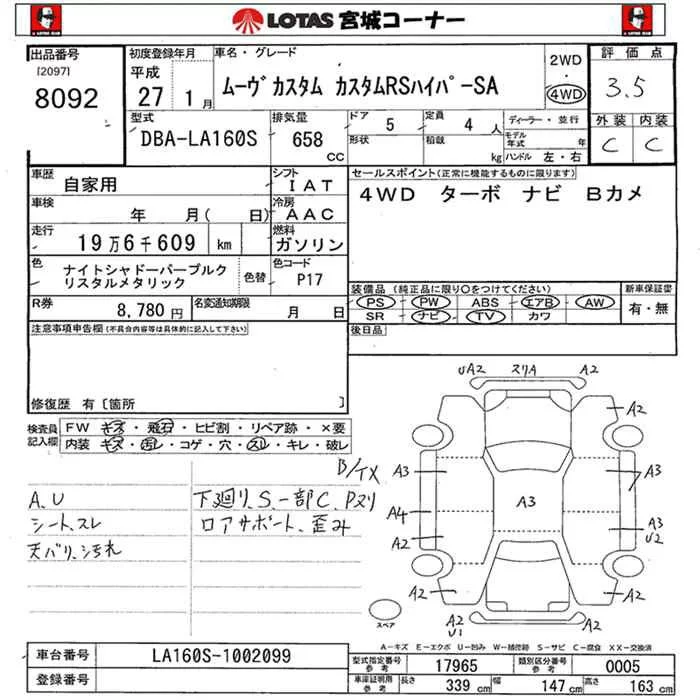 LOTAS 宮城コーナー
出品番号
[2097]
8092
初度登録年月
平成
27 1月
車名・グレード
ムーヴカスタム カスタムRSハイパーSA
2WD
・
4WD
評価点
3.5
外装 内装
C C
型式
DBA-LA160S
排気量
658
CC
ドア 5
形状
定員 4人
積載 kg
ディーラー・並行
モデル年式 年
ハンドル 左・右
車歴 自家用
シフト IAT
車検 年 月( 日)
冷房 AAC
走行 19万6千609 km
燃料 ガソリン
色 ナイトシャドーパープルクリスタルメタリック
色替
色コード P17
R券 8,780円
名変通知期限 月 日
セールスポイント(正常に機能するものに限ります)
4WD ターボ ナビ Bカメ
装備品 (純正品に限り○をつけてください)
PS PW ABS エアB AW
SR ナビ TV カワ
新車保証書
有・無
後日品
注意事項申告欄(不具合内容等は具体的に記入して下さい)
修復歴 有〔箇所 〕
検査員記入欄
FW キズ・飛石・ヒビ割・リペア跡・×要
内装 キズ・汚レ・コゲ・穴・スレ・キレ・破レ
A、U
シート、スレ
天バリ、汚れ
下廻り、S、一部C、Pスリ
ロアサポート、歪み
B/TX
UA2 スリA A2
A2
A3
A3
A3
A4
A3
U2
A2
A2
A2
A2
U1
A2
スペア
A－キズ E－エクボ U－凹み W－補修跡 S－サビ C－腐食 XX－交換済
車台番号 LA160S-1002099
登録番号
型式指定番号 参考 17965
類別区分番号 参考 0005
車庫証明用 参考 長さ 339cm 幅 147cm 高さ 163cm